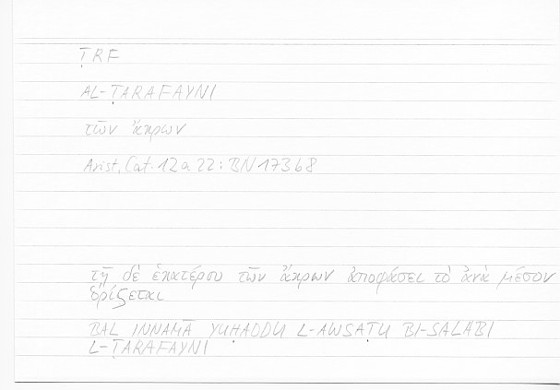 ṬRF
AL-ṬARAFAYNI
τῶν ἄκρων
Arist., Cat. 12a22: BN 17368
τῇ δὲ ἑκατέρου τῶν ἄκρων ἀποφάσει τὸ ἀνὰ μέσον
ὁρίζεται
BAL INNAMĀ YUḤADDU L-AWSAṬU BI-SALABI
L-ṬARAFAYNI